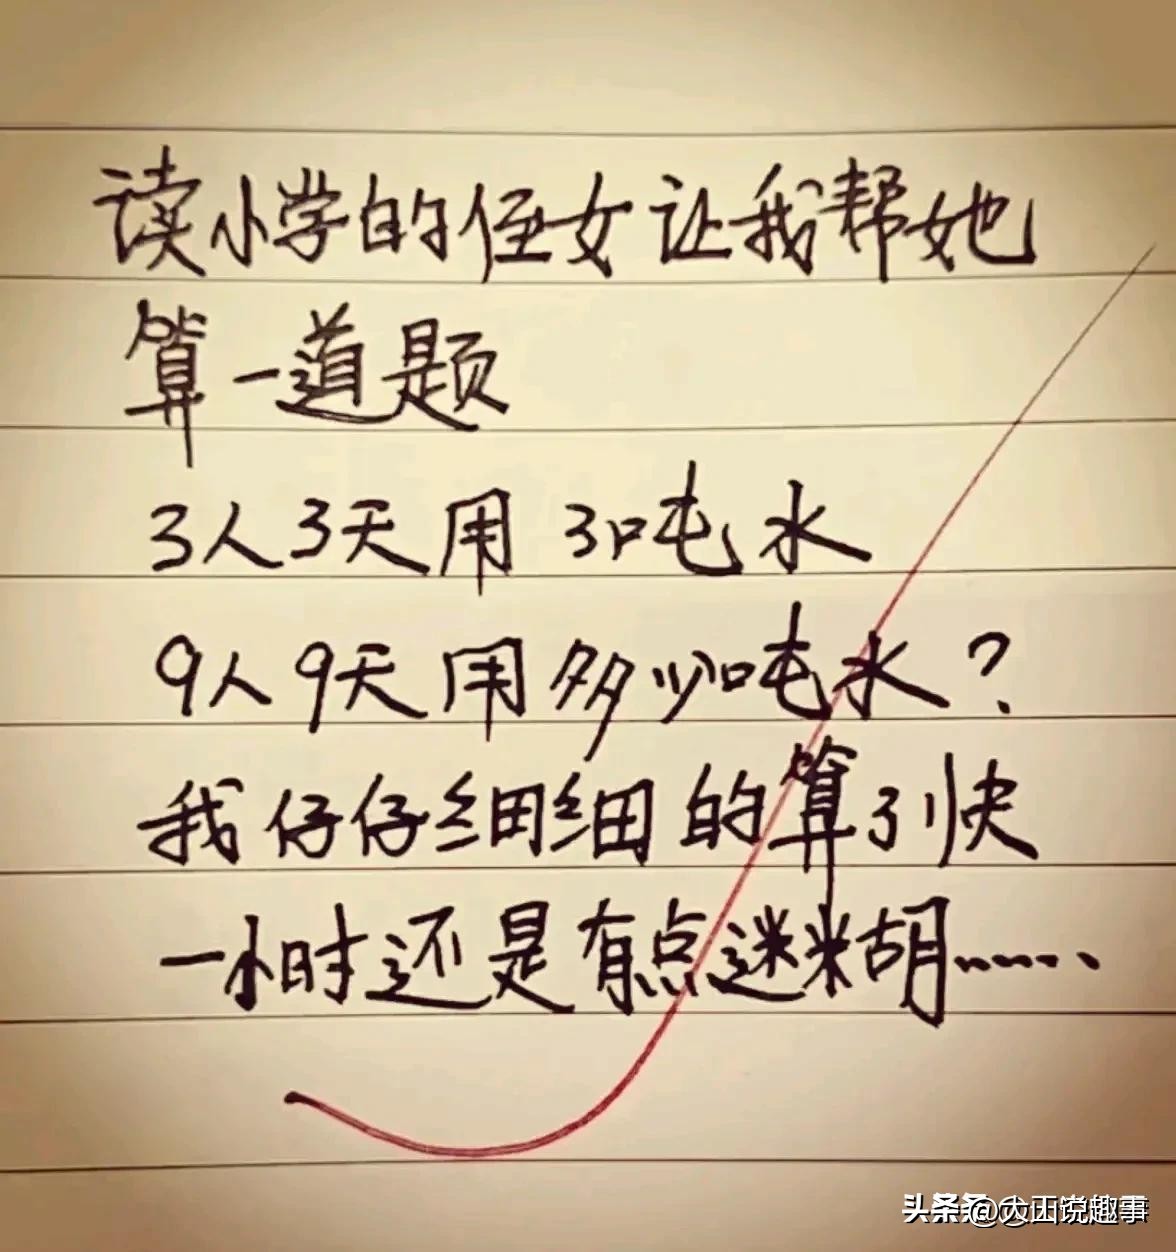 读小学的侄女让我帮她
算一道题
3人3天用3吨水
9人9天用多少吨水?
我仔仔细细的算了快
一小时还是有点迷糊……
头条 @大正说趣事